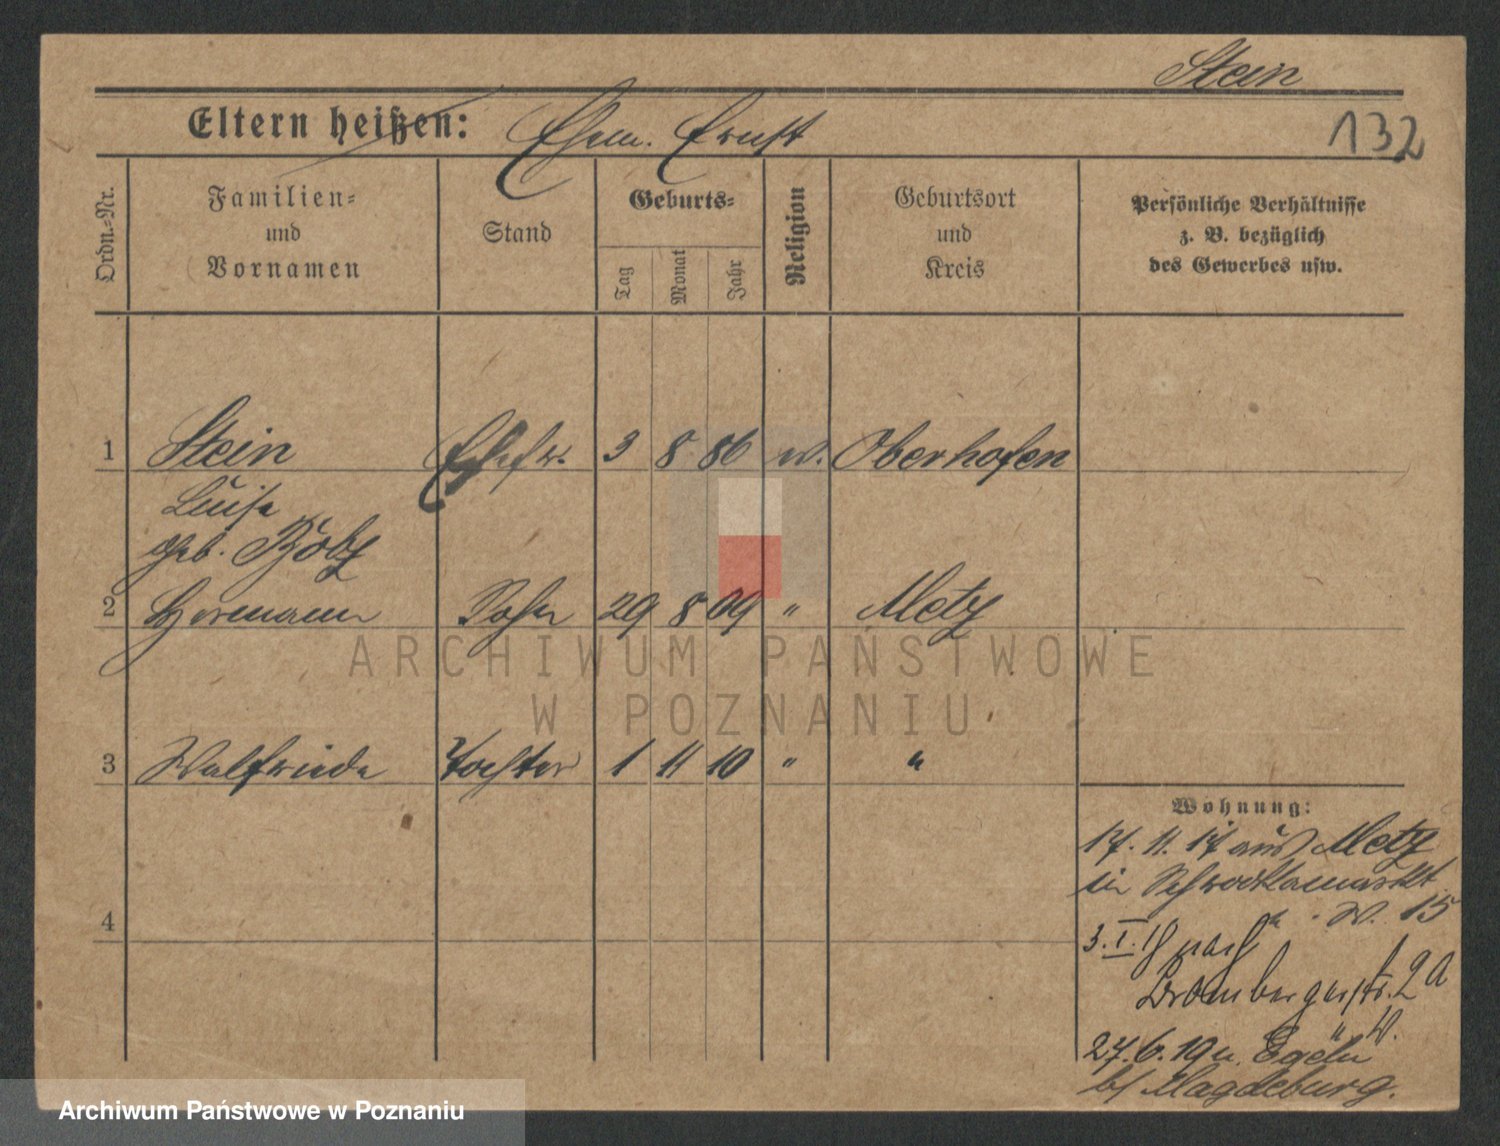 Stein
Eltern heißen: Ehem. Ernst
132
Ordn.-Nr.
Familien- und Vornamen
Stand
Geburts-
Tag
Monat
Jahr
Religion
Geburtsort und Kreis
Persönliche Verhältnisse
z. B. bezüglich
des Gewerbes usw.
1 Stein Ehefr. 3 8 86 ev. Oberhofen
Luise
geb.
2 Hermann Sohn 29 8 09 " Metz
3 Walfriede Tochter 1 11 10 " "
4
Wohnung:
17. 11. 17 aus Metz
in Schrodkamarkt
W. 15
3. I. 18 nach
Brombergerstr. 2a
" W.
27. 6. 19 n. Egeln
b/ Magdeburg.
ARCHIWUM PAŃSTWOWE
W POZNANIU
Archiwum Państwowe w Poznaniu